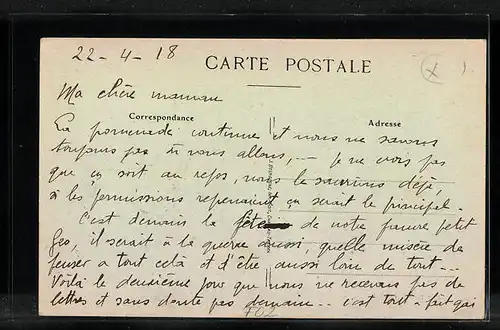 22-4-18
CARTE POSTALE
Ma chère maman
Correspondance
Adresse
La promenade continue et nous ne savons
toujours pas où nous allons, -- Je ne crois pas
que ça soit au repos, nous le saurions déjà,
si les permissions reprenaient ça serait le principal -
C'est demain la fête de notre pauvre petit
Geo, il serait à la guerre aussi, quelle misère de
penser à tout celà et d'être aussi loin de tout ---
Voilà le deuxième jour que nous ne recevons pas de
lettres et sans doute pas demain -- c'est tout à fait gai
702